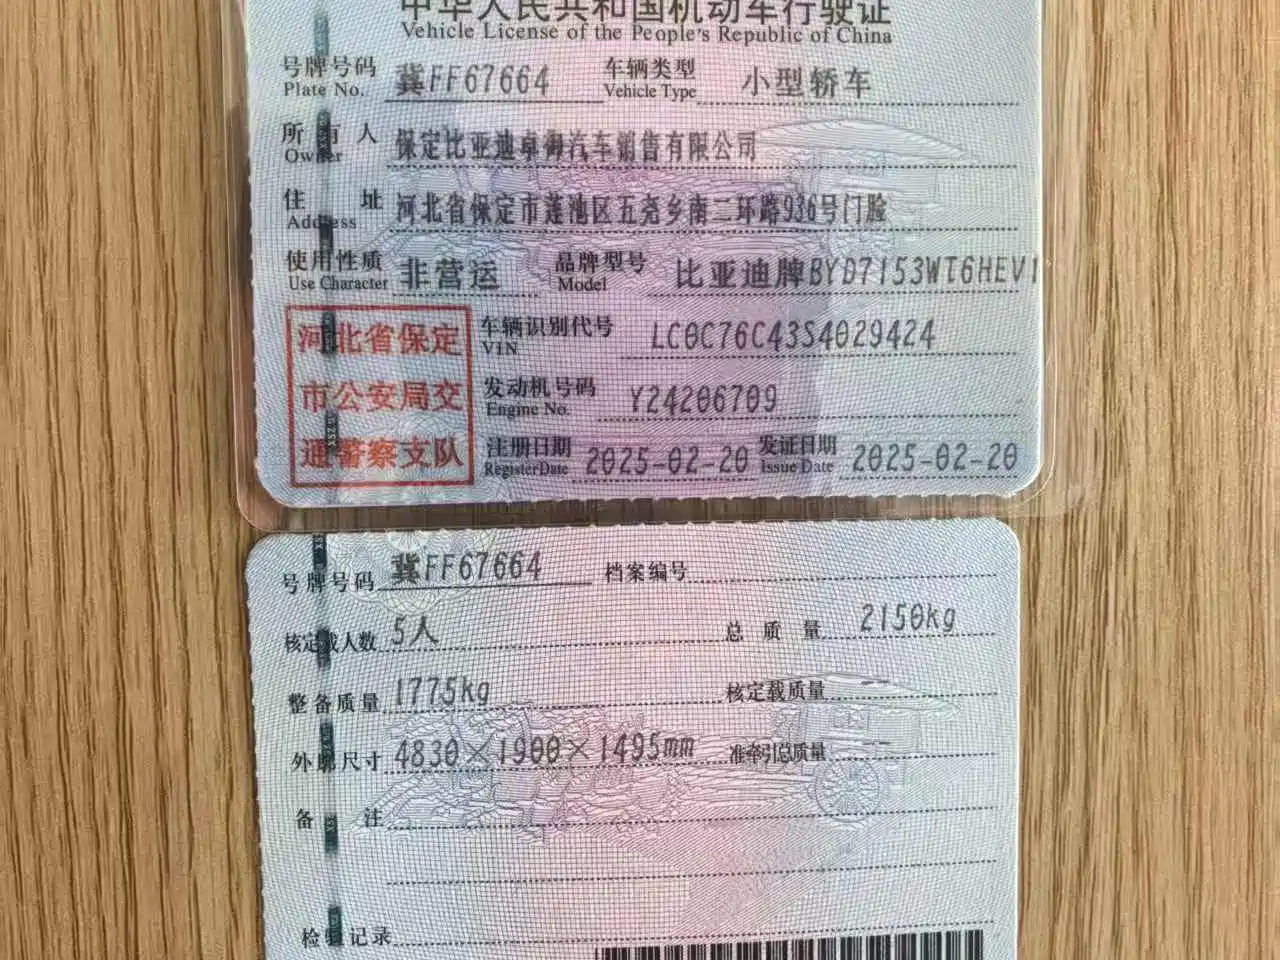 中华人民共和国机动车行驶证
Vehicle License of the People's Republic of China
号牌号码 冀FF67664 车辆类型 小型轿车
Plate No. Vehicle Type
所有人 保定比亚迪卓御汽车销售有限公司
Owner
住址 河北省保定市莲池区五尧乡南二环路936号门脸
Address
使用性质 非营运 品牌型号 比亚迪牌BYD7153WT6HEV1
Use Character Model
河北省保定
市公安局交
通警察支队
车辆识别代号 LC0C76C43S4029424
VIN
发动机号码 Y24206709
Engine No.
注册日期 2025-02-20 发证日期 2025-02-20
Register Date Issue Date
号牌号码 冀FF67664 档案编号
核定载人数 5人 总质量 2150kg
整备质量 1775kg 核定载质量 --
外廓尺寸 4830×1900×1495mm 准牵引总质量 --
备注
检验记录